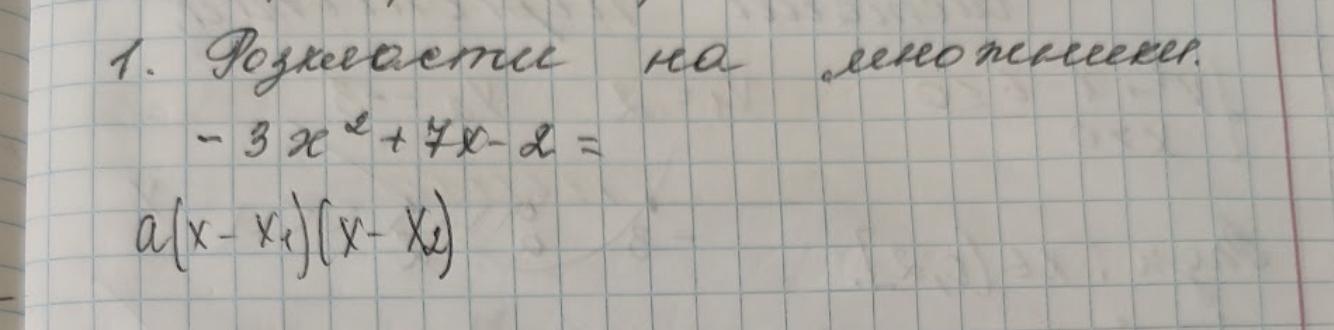 1. Розкласти на множники.
- 3x² + 7x - 2 =
a(x - x₁)(x - x₂)